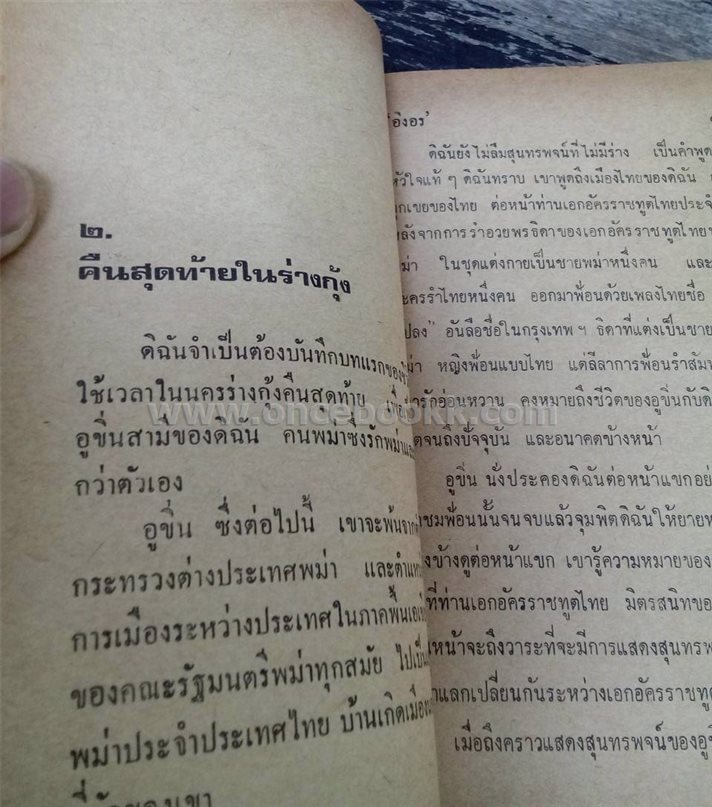 ๒.
คืนสุดท้ายในร่างกุ้ง
ดิฉันจำเป็นต้องบันทึกบทแรกของ
ใช้เวลาในนครร่างกุ้งคืนสุดท้าย เพื่อ
อูขิ่นสามีของดิฉัน คนพม่าซึ่งรักพม่า
กว่าตัวเอง
อูขิ่น ซึ่งต่อไปนี้ เขาจะพ้นจาก
กระทรวงต่างประเทศพม่า และตำแห
การเมืองระหว่างประเทศในภาคพื้น
ของคณะรัฐมนตรีพม่าทุกสมัย ไปเป็น
พม่าประจำประเทศไทย บ้านเกิดเมือง
'อิงอร'
ดิฉันยังไม่ลืมสุนทรพจน์ที่ไม่มีร่าง เป็นคำพูด
หัวใจแท้ ๆ ดิฉันทราบ เขาพูดถึงเมืองไทยของดิฉัน
ลูกเขยของไทย ต่อหน้าท่านเอกอัครราชทูตไทยประจำ
หลังจากการรำอวยพรธิดาของเอกอัครราชทูตไทย
ม่า ในชุดแต่งกายเป็นชายพม่าหนึ่งคน และ
ะครรำไทยหนึ่งคน ออกมาฟ้อนด้วยเพลงไทยชื่อ
ปลง" อันลือชื่อในกรุงเทพ ฯ ธิดาที่แต่งเป็นชาย
ม่า หญิงฟ้อนแบบไทย แต่ลีลาการฟ้อนรำสัม
ารักอ่อนหวาน คงหมายถึงชีวิตของอูขิ่นกับดิ
ตจนถึงปัจจุบัน และอนาคตข้างหน้า
อูขิ่น นั่งประคองดิฉันต่อหน้าแขกอย่
ชมฟ้อนนั้นจนจบแล้วจุมพิตดิฉันให้ยาย
งข้างดูต่อหน้าแขก เขารู้ความหมายของ
ที่ท่านเอกอัครราชทูตไทย มิตรสนิทขอ
หน้าจะถึงวาระที่จะมีการแสดงสุนทรพ
าแลกเปลี่ยนกันระหว่างเอกอัครราชทู
เมื่อถึงคราวแสดงสุนทรพจน์ของอู
www.oncebookk.com